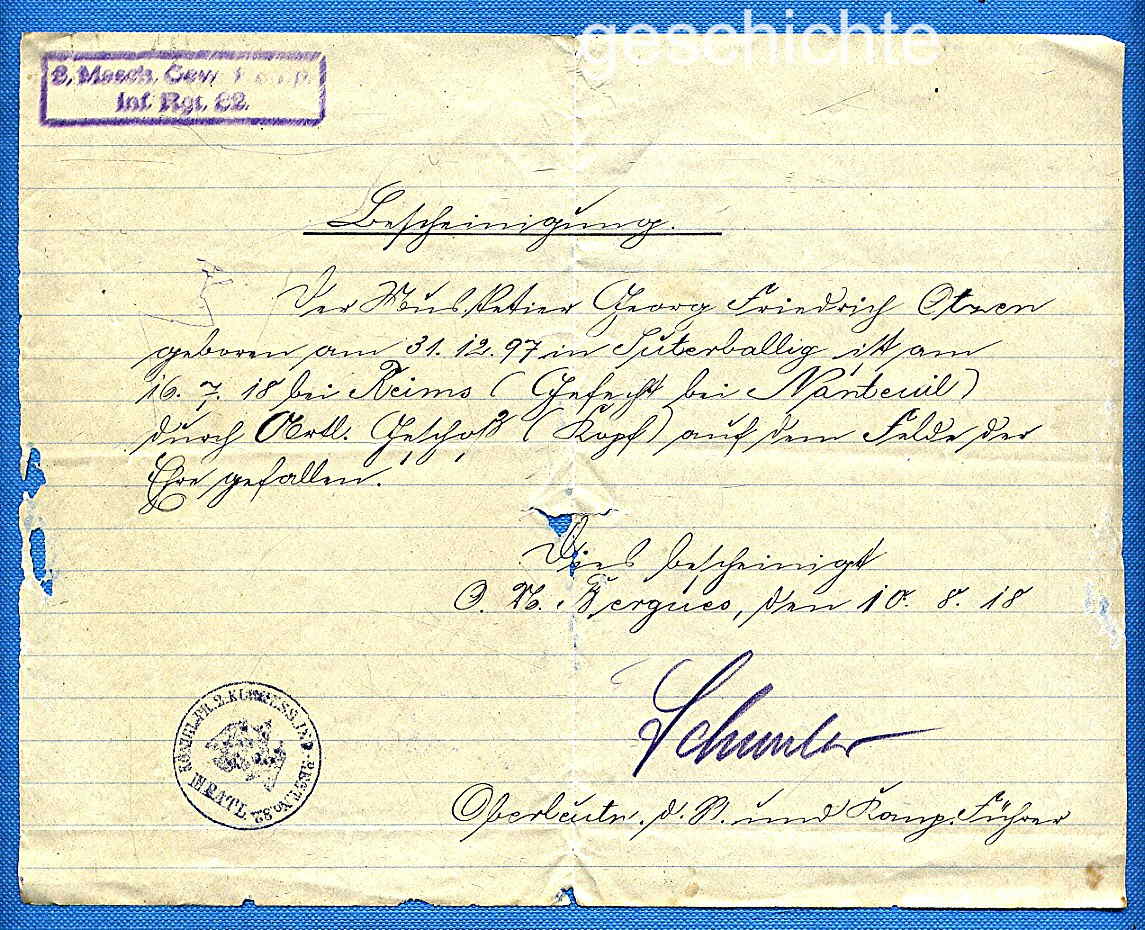 geschichte
2. Masch. Gew. Komp.
Inf. Rgt. 82.
Bescheinigung.
Der Musketier Georg Friedrich Otzen
geboren am 31. 12. 97 in Süterballig ist am
16. 7. 18 bei Reims (Gefecht bei Nanteuil)
durch Artl. Geschoß (Kopf) auf dem Felde der
Ehre gefallen.
Dies bescheinigt
O. U. Bergues, den 10. 8. 18
Oberleutn. d. R. und Komp. Führer
KÖNIGL. PR. 2. KURHESS. INF. REGT. No. 82